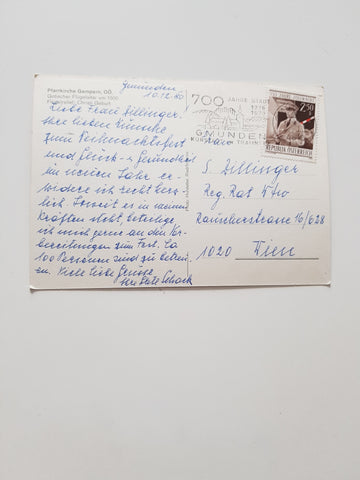 Pfarrkirche Gampern, OÖ.
Gotischer Flügelaltar um 1500
Flügelrelief: Christi Geburt
Gmunden
10.12.80
Liebe Frau Zillinger,
Ihre lieben Wünsche
zum Weihnachtsfest
und Glück u. Gesundheit
im neuen Jahr er-
widere ich recht herz-
lich. Soweit es in meinen
Kräften steht, beteilige
ich mich gerne an den Vor-
bereitungen zum Fest. Ca
100 Personen sind zu betreu-
en. Viele liebe Grüsse
Ihre
700 JAHRE STADT
1278
1978
GMUNDEN
2.50
REPUBLIK ÖSTERREICH
Frau
S. Zillinger
Reg. Rat Wtw
Rauscherstrasse 16/628
1020 Wien